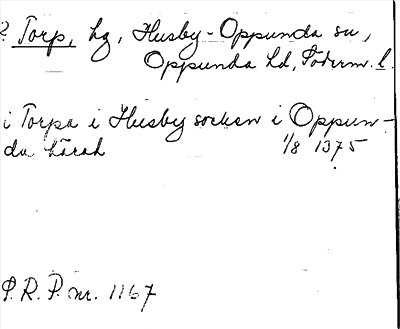 ? Torp, hg, Husby-Oppunda sn,
Oppunda hd, Söderm. l.
i Torpa i Husby socken i Oppun-
da hårah 1/8 1375
P.R.P. nr. 1167